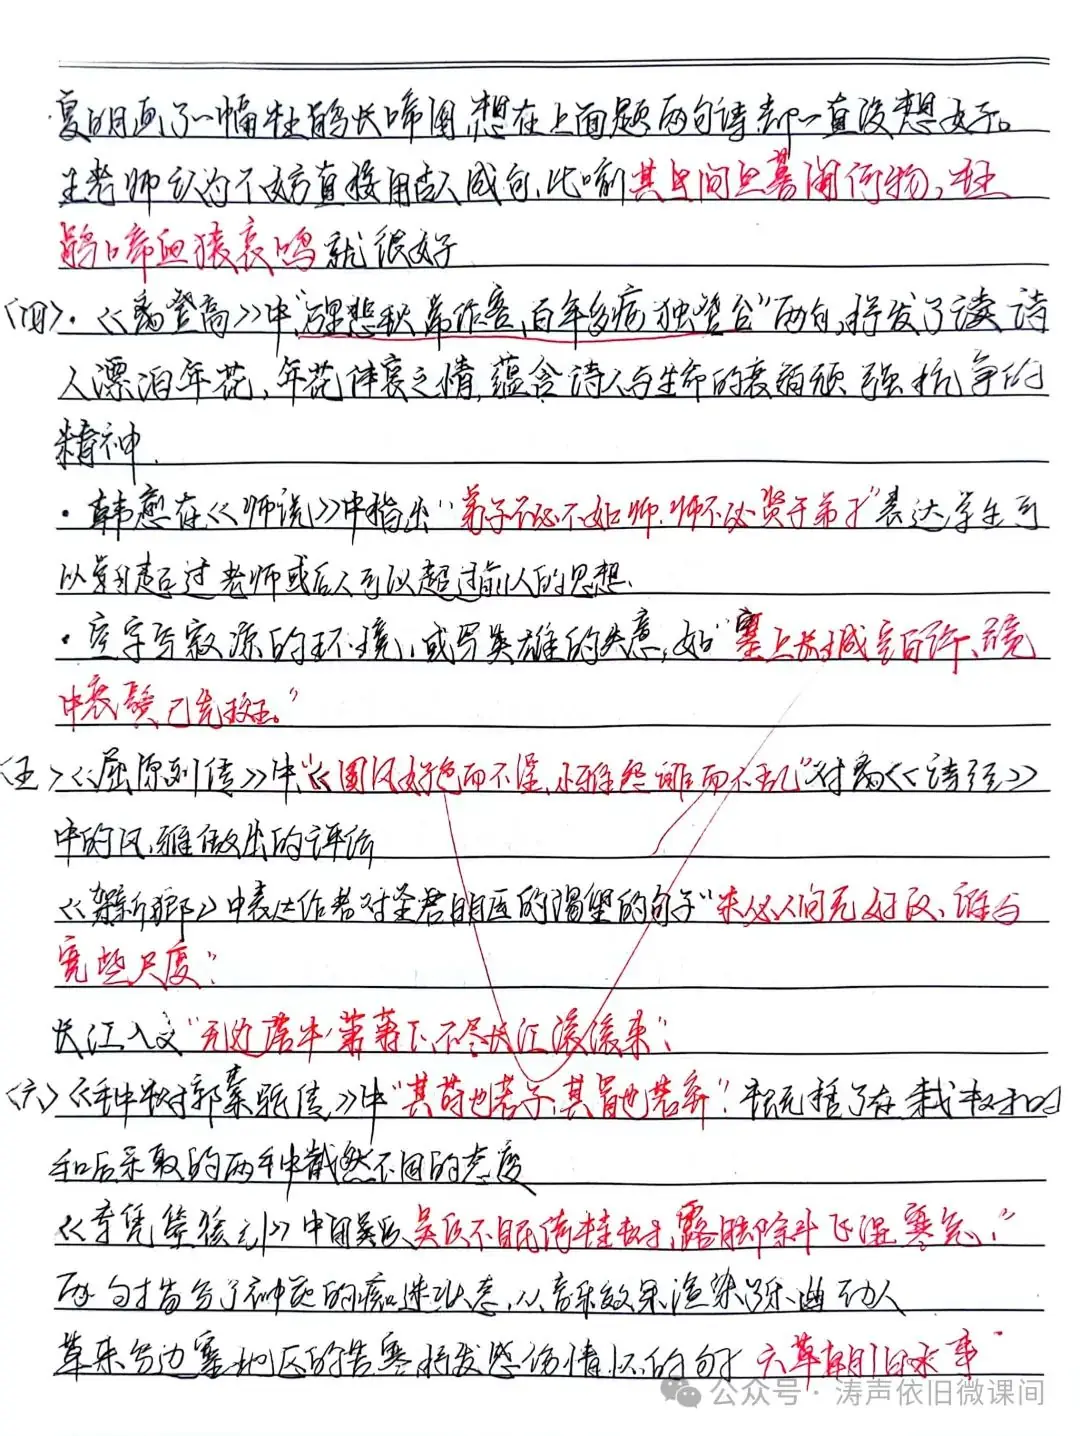 夏明画了一幅杜鹃长啼图,想在上面题两句诗却一直没想好。
王老师认为不妨直接用古人成句,比喻其间旦暮闻何物,杜
鹃啼血猿哀鸣就很好
〈四〉·《登高》中"万里悲秋常作客,百年多病独登台"两句,抒发了诗
人漂泊年花,年花体衰之情,蕴含诗人与生命的衰颓顽强抗争的
精神.
·韩愈在《师说》中指出"弟子不必不如师.师不必贤于弟子"表达学生可
以超过老师或后人可以超过前人的思想.
·空字写寂的环境,或写英雄的失意,如"塞上长城空自许,镜
中衰鬓已先斑。"
〈五〉《屈原列传》中,"《国风好色而不淫,小雅怨诽而不乱"对《诗经》
中的风,雅做出的评价
《贺新郎》中表达作者对圣君的渴望的句子"未必人间无好汉、谁与
宽些尺度"
长江入文"无边落木萧萧下,不尽长江滚滚来"
〈六〉《种树郭橐驼传》中"其莳也若子,其置也若弃"概括了在栽
和后采取的两种截然不同的态度
《李凭箜篌引》中用吴吴质不眠倚桂树,露脚斜飞湿寒
两句描写了神的痴迷状态,从音乐效果渲染了乐曲动人
草来写边塞地区的苦寒抒发感伤情怀的句
公众号·涛声依旧微课间